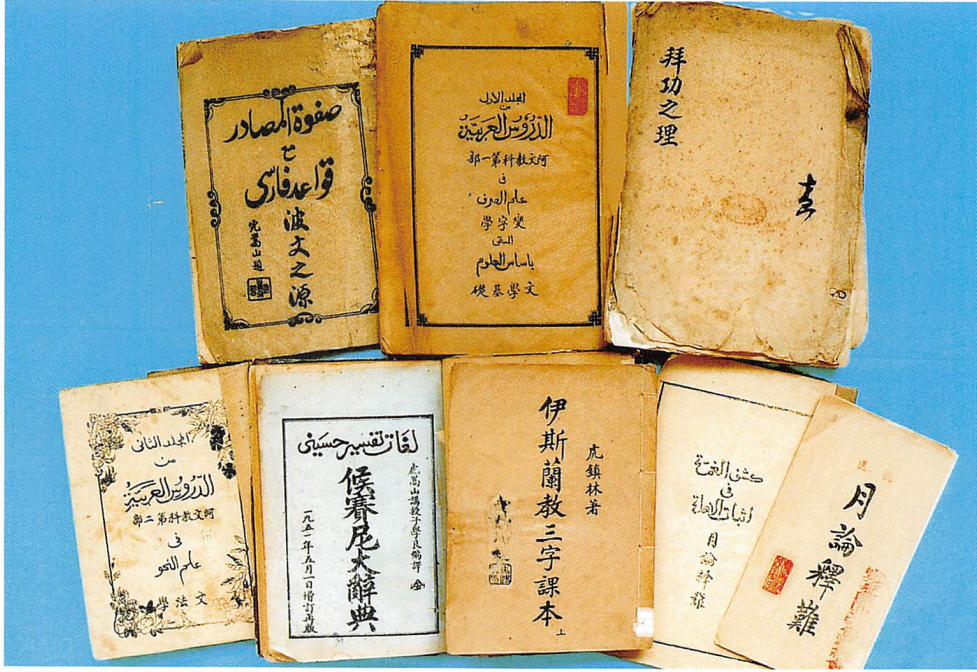 صفوة المصادر
مع
قواعد فارسی
波文之源
虎嵩山題
المجلد الاول
من
الدروس العربية
阿文教科第一部
فى
علم الصرف
變字學
باساس العلوم
文學基礎
拜功之理
المجلد الثانى
من
الدروس العربية
阿文教科第二部
فى
علم النحو
文法學
لغات تفسير حسينى
虎嵩山講授子學良編譯
侯賽尼大辭典
一九五一年五月一日增訂再版
虎鎮林著
伊斯蘭教三字課本
上
كشف الغمة
فى
اثبات الاهلة
月論釋難
月論釋難